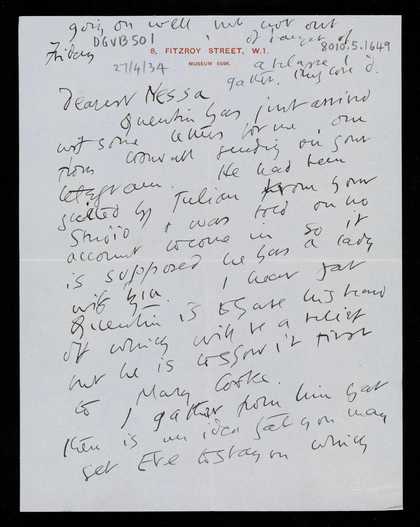 going on well but not out
DGVB501
of danger of
Friday
8, FITZROY STREET, W.1.
8010.5.1649
27/4/34
MUSEUM
a relapse I
gather.
Dearest Nessa
Quentin has just arrived
with some letters for me, one
from Cornwall sending on your
telegram. He had been
greeted by Julian from your
Studio & was told on no
account to come in so it
is supposed he has a lady
with him. I hear that
Quentin is to have his beard
off which will be a relief
but he is to show it first
to Mary
I gather from him that
there is an idea that you may
get Eve to stay on which